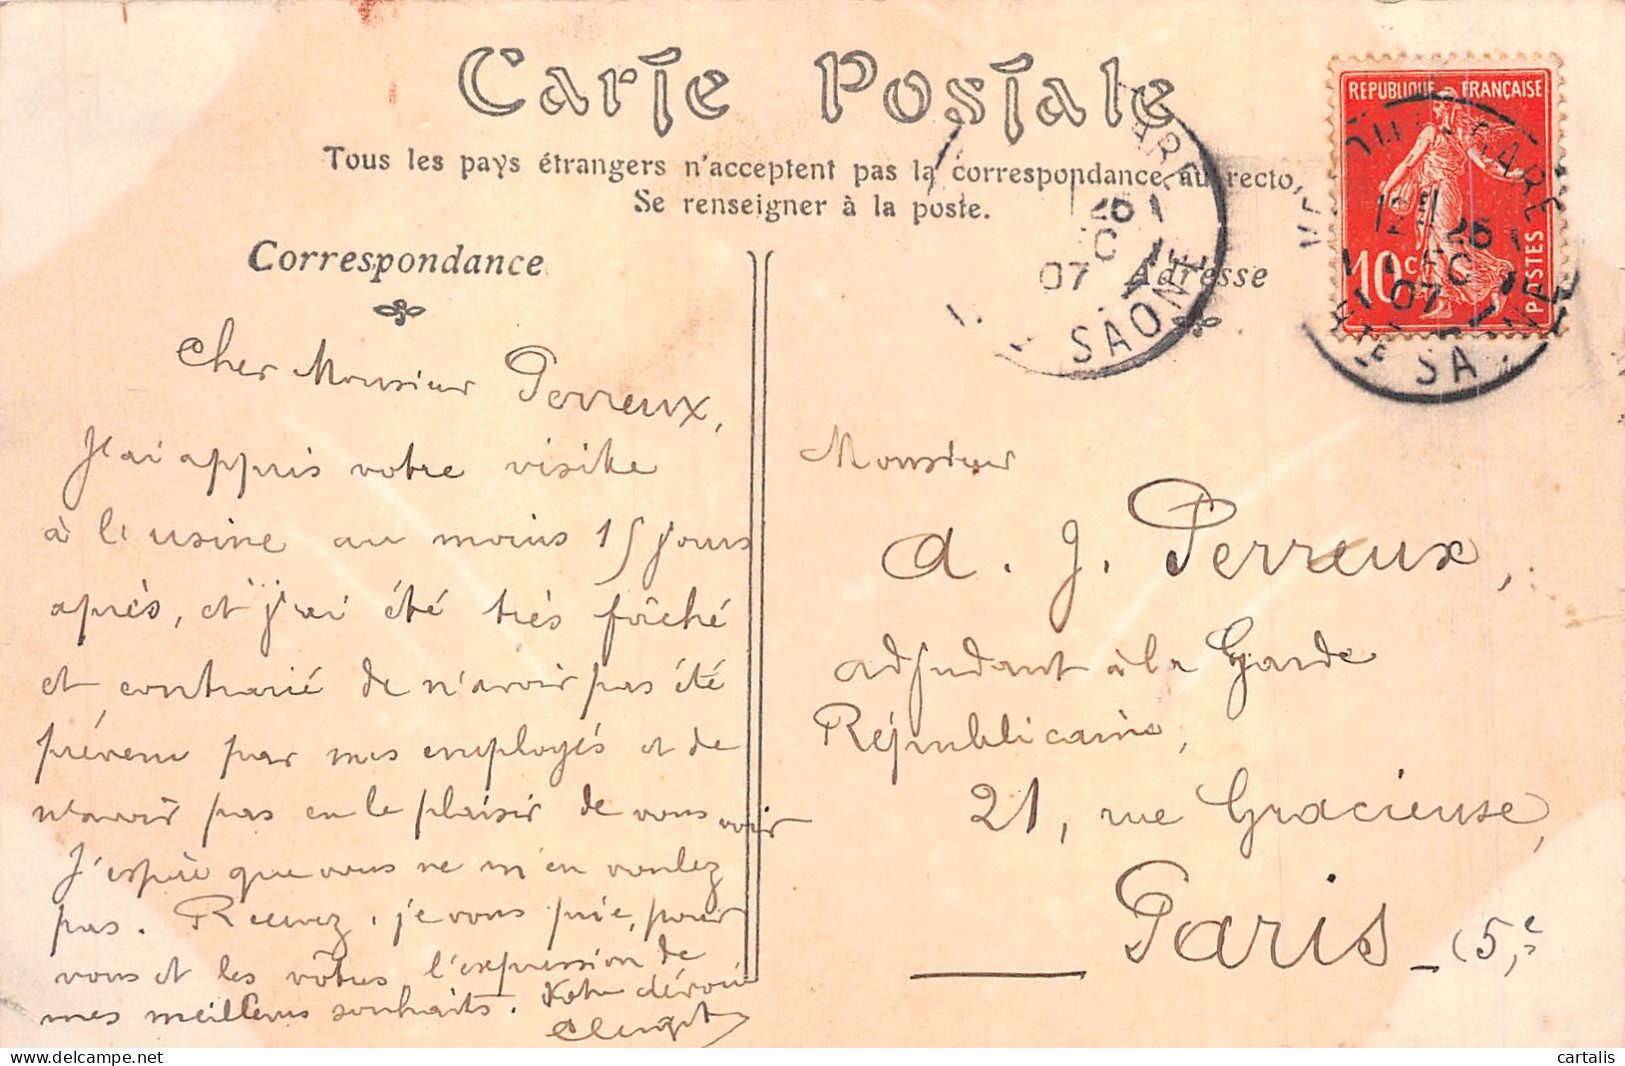 Carte Postale
Tous les pays étrangers n'acceptent pas la correspondance au recto,
Se renseigner à la poste.
Correspondance
Adresse
REPUBLIQUE FRANÇAISE
10 c
POSTES
GARE
26
07
SAONE
GARE
26
07
Cher Monsieur Perreux,
J'ai appris votre visite
à l'usine au moins 15 jours
après, et j'ai été très fâché
et contrarié de n'avoir pas été
prévenu par mes employés et de
n'avoir pas eu le plaisir de vous voir
J'espère que vous ne m'en voulez
pas. Recevez, je vous prie, pour
vous et les vôtres l'expression de
mes meilleurs souhaits. Votre dévoué
Monsieur
A. J. Perreux,
adjudant à la Garde
Républicaine,
21, rue Gracieuse,
Paris (5,e
cartalis